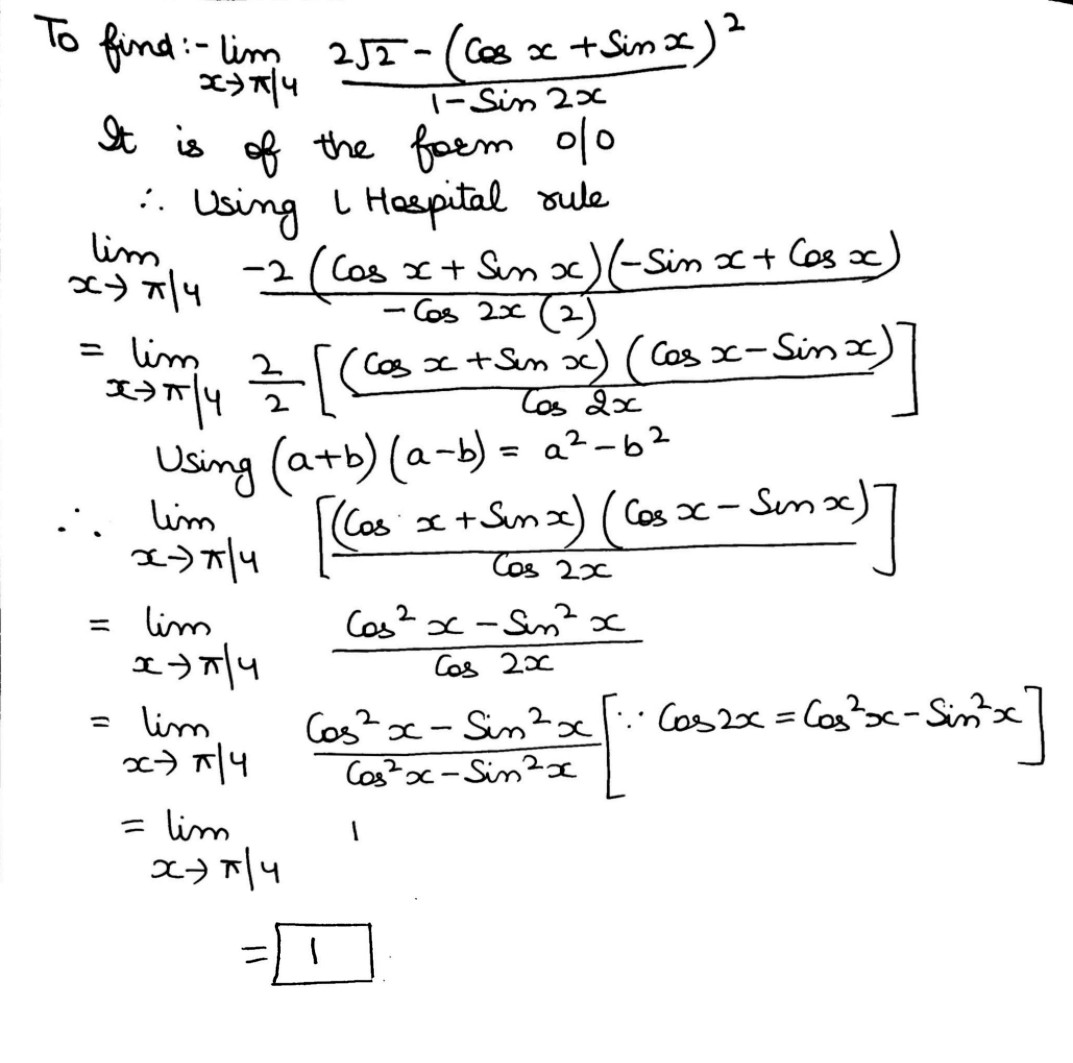 To find:- lim x→π/4 2√2 - (Cos x + Sin x)² / 1 - Sin 2x
It is of the form 0/0
∴ Using L Hospital rule
lim x→π/4 -2 (Cos x + Sin x)(-Sin x + Cos x) / -Cos 2x (2)
= lim x→π/4 2/2 [(Cos x + Sin x) (Cos x - Sin x) / Cos 2x]
Using (a+b) (a-b) = a² - b²
∴ lim x→π/4 [(Cos x + Sin x) (Cos x - Sin x) / Cos 2x]
= lim x→π/4 Cos² x - Sin² x / Cos 2x
= lim x→π/4 Cos² x - Sin² x / Cos² x - Sin² x [∵ Cos 2x = Cos² x - Sin² x]
= lim x→π/4 1
= 1